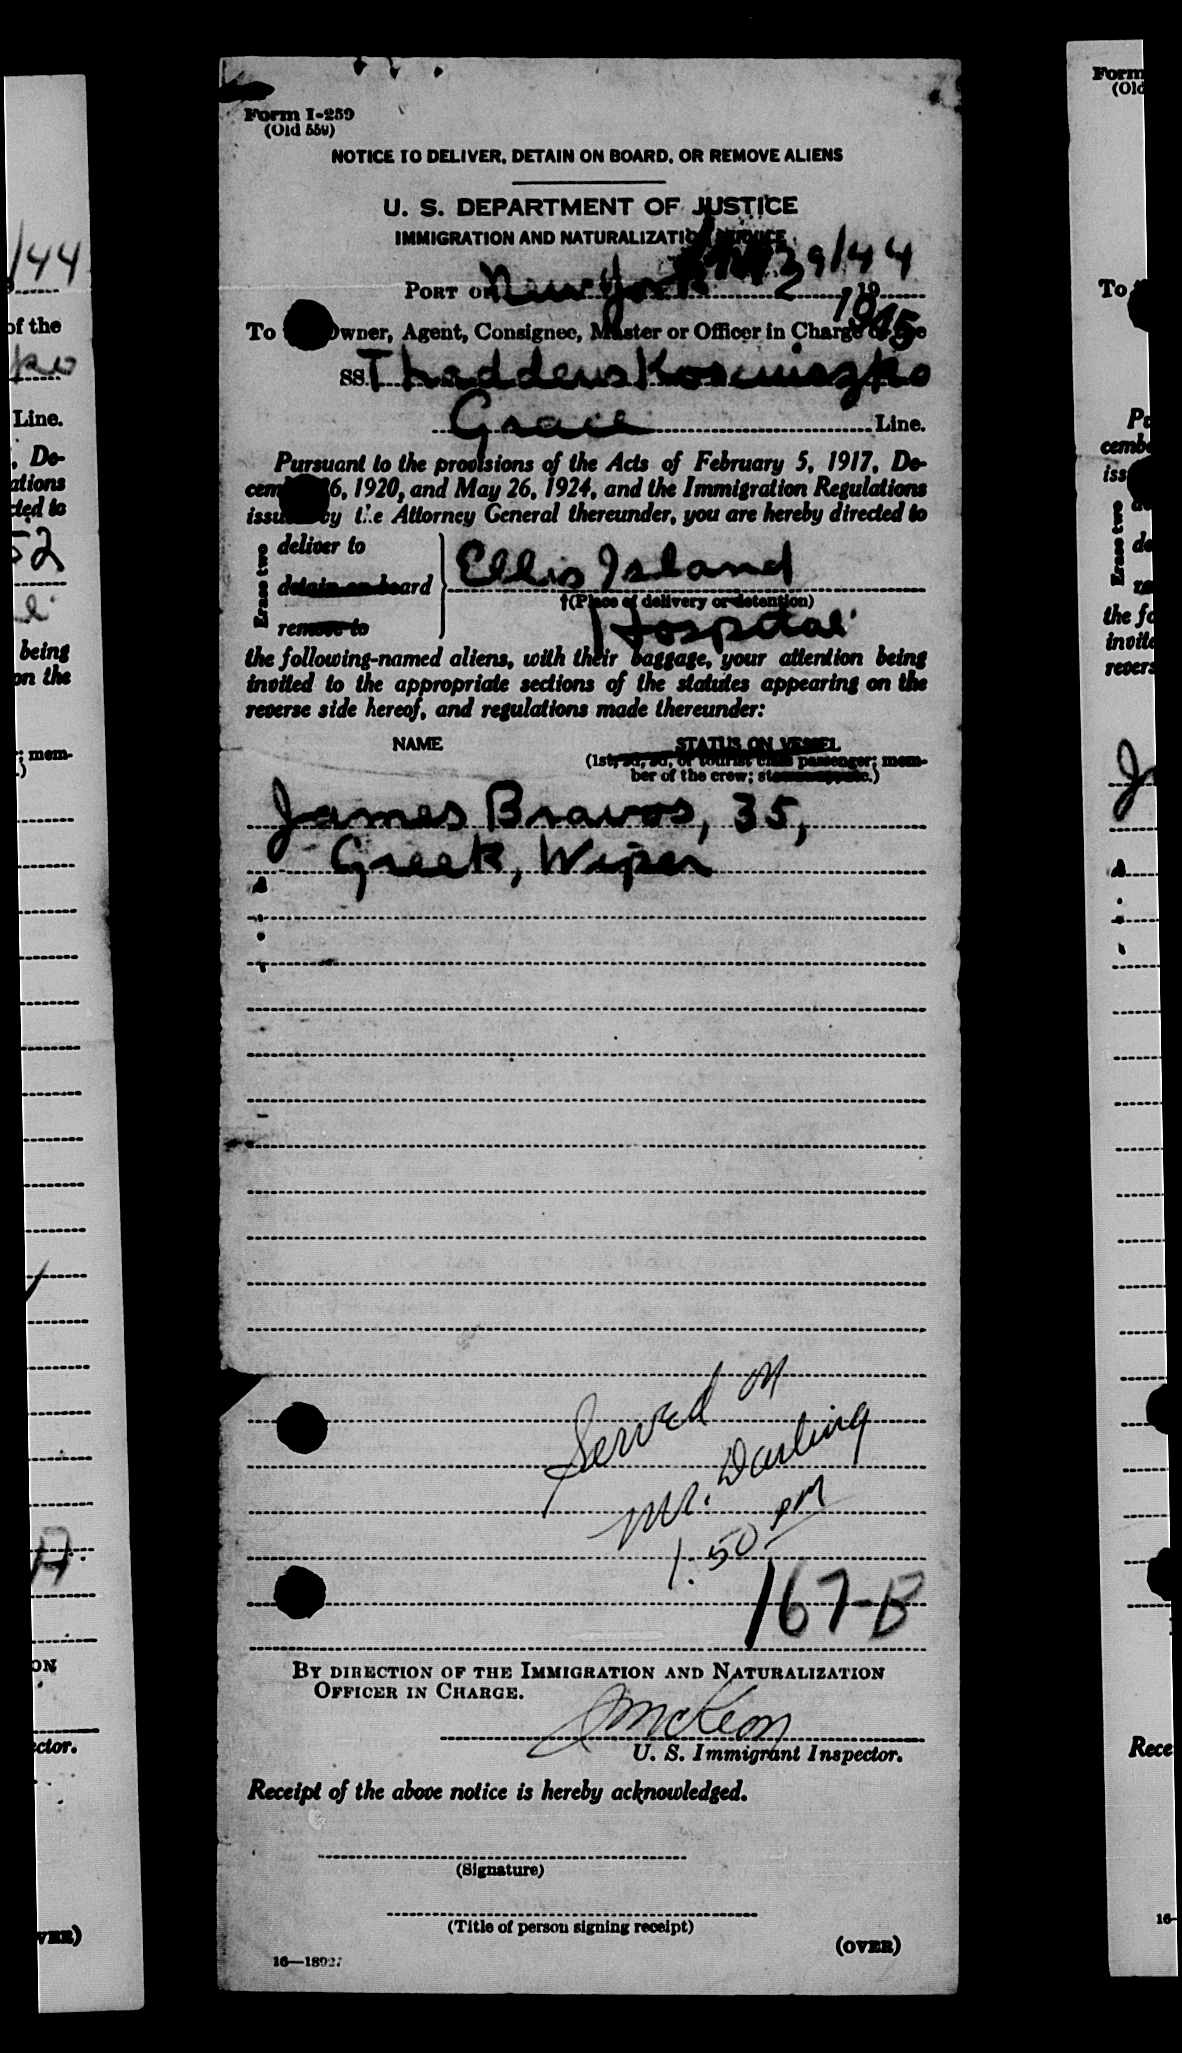 Form I-259
(Old 559)
NOTICE TO DELIVER, DETAIN ON BOARD, OR REMOVE ALIENS
U. S. DEPARTMENT OF JUSTICE
IMMIGRATION AND NATURALIZATION SERVICE
PORT OF New York 29/44 19
1945
To Owner, Agent, Consignee, Master or Officer in Charge of the
SS. Thaddeus Kosciuszko
Grace Line.
Pursuant to the provisions of the Acts of February 5, 1917, De-
cem 6, 1920, and May 26, 1924, and the Immigration Regulations
issued by the Attorney General thereunder, you are hereby directed to
Erase two
deliver to
detain on board
remove to
Ellis Island
†(Place of delivery or detention)
Hospital
the following-named aliens, with their baggage, your attention being
invited to the appropriate sections of the statutes appearing on the
reverse side hereof, and regulations made thereunder:
NAME STATUS ON VESSEL
(1st, 2d, 3d, or tourist class passenger; mem-
ber of the crew; stowaway, etc.)
James Bravos, 35,
Greek, Wiper
Served on
Mr. Darling
1:50 PM
167-B
BY DIRECTION OF THE IMMIGRATION AND NATURALIZATION
OFFICER IN CHARGE.
McKeon
U. S. Immigrant Inspector.
Receipt of the above notice is hereby acknowledged.
(Signature)
(Title of person signing receipt)
(OVER)
16—18927